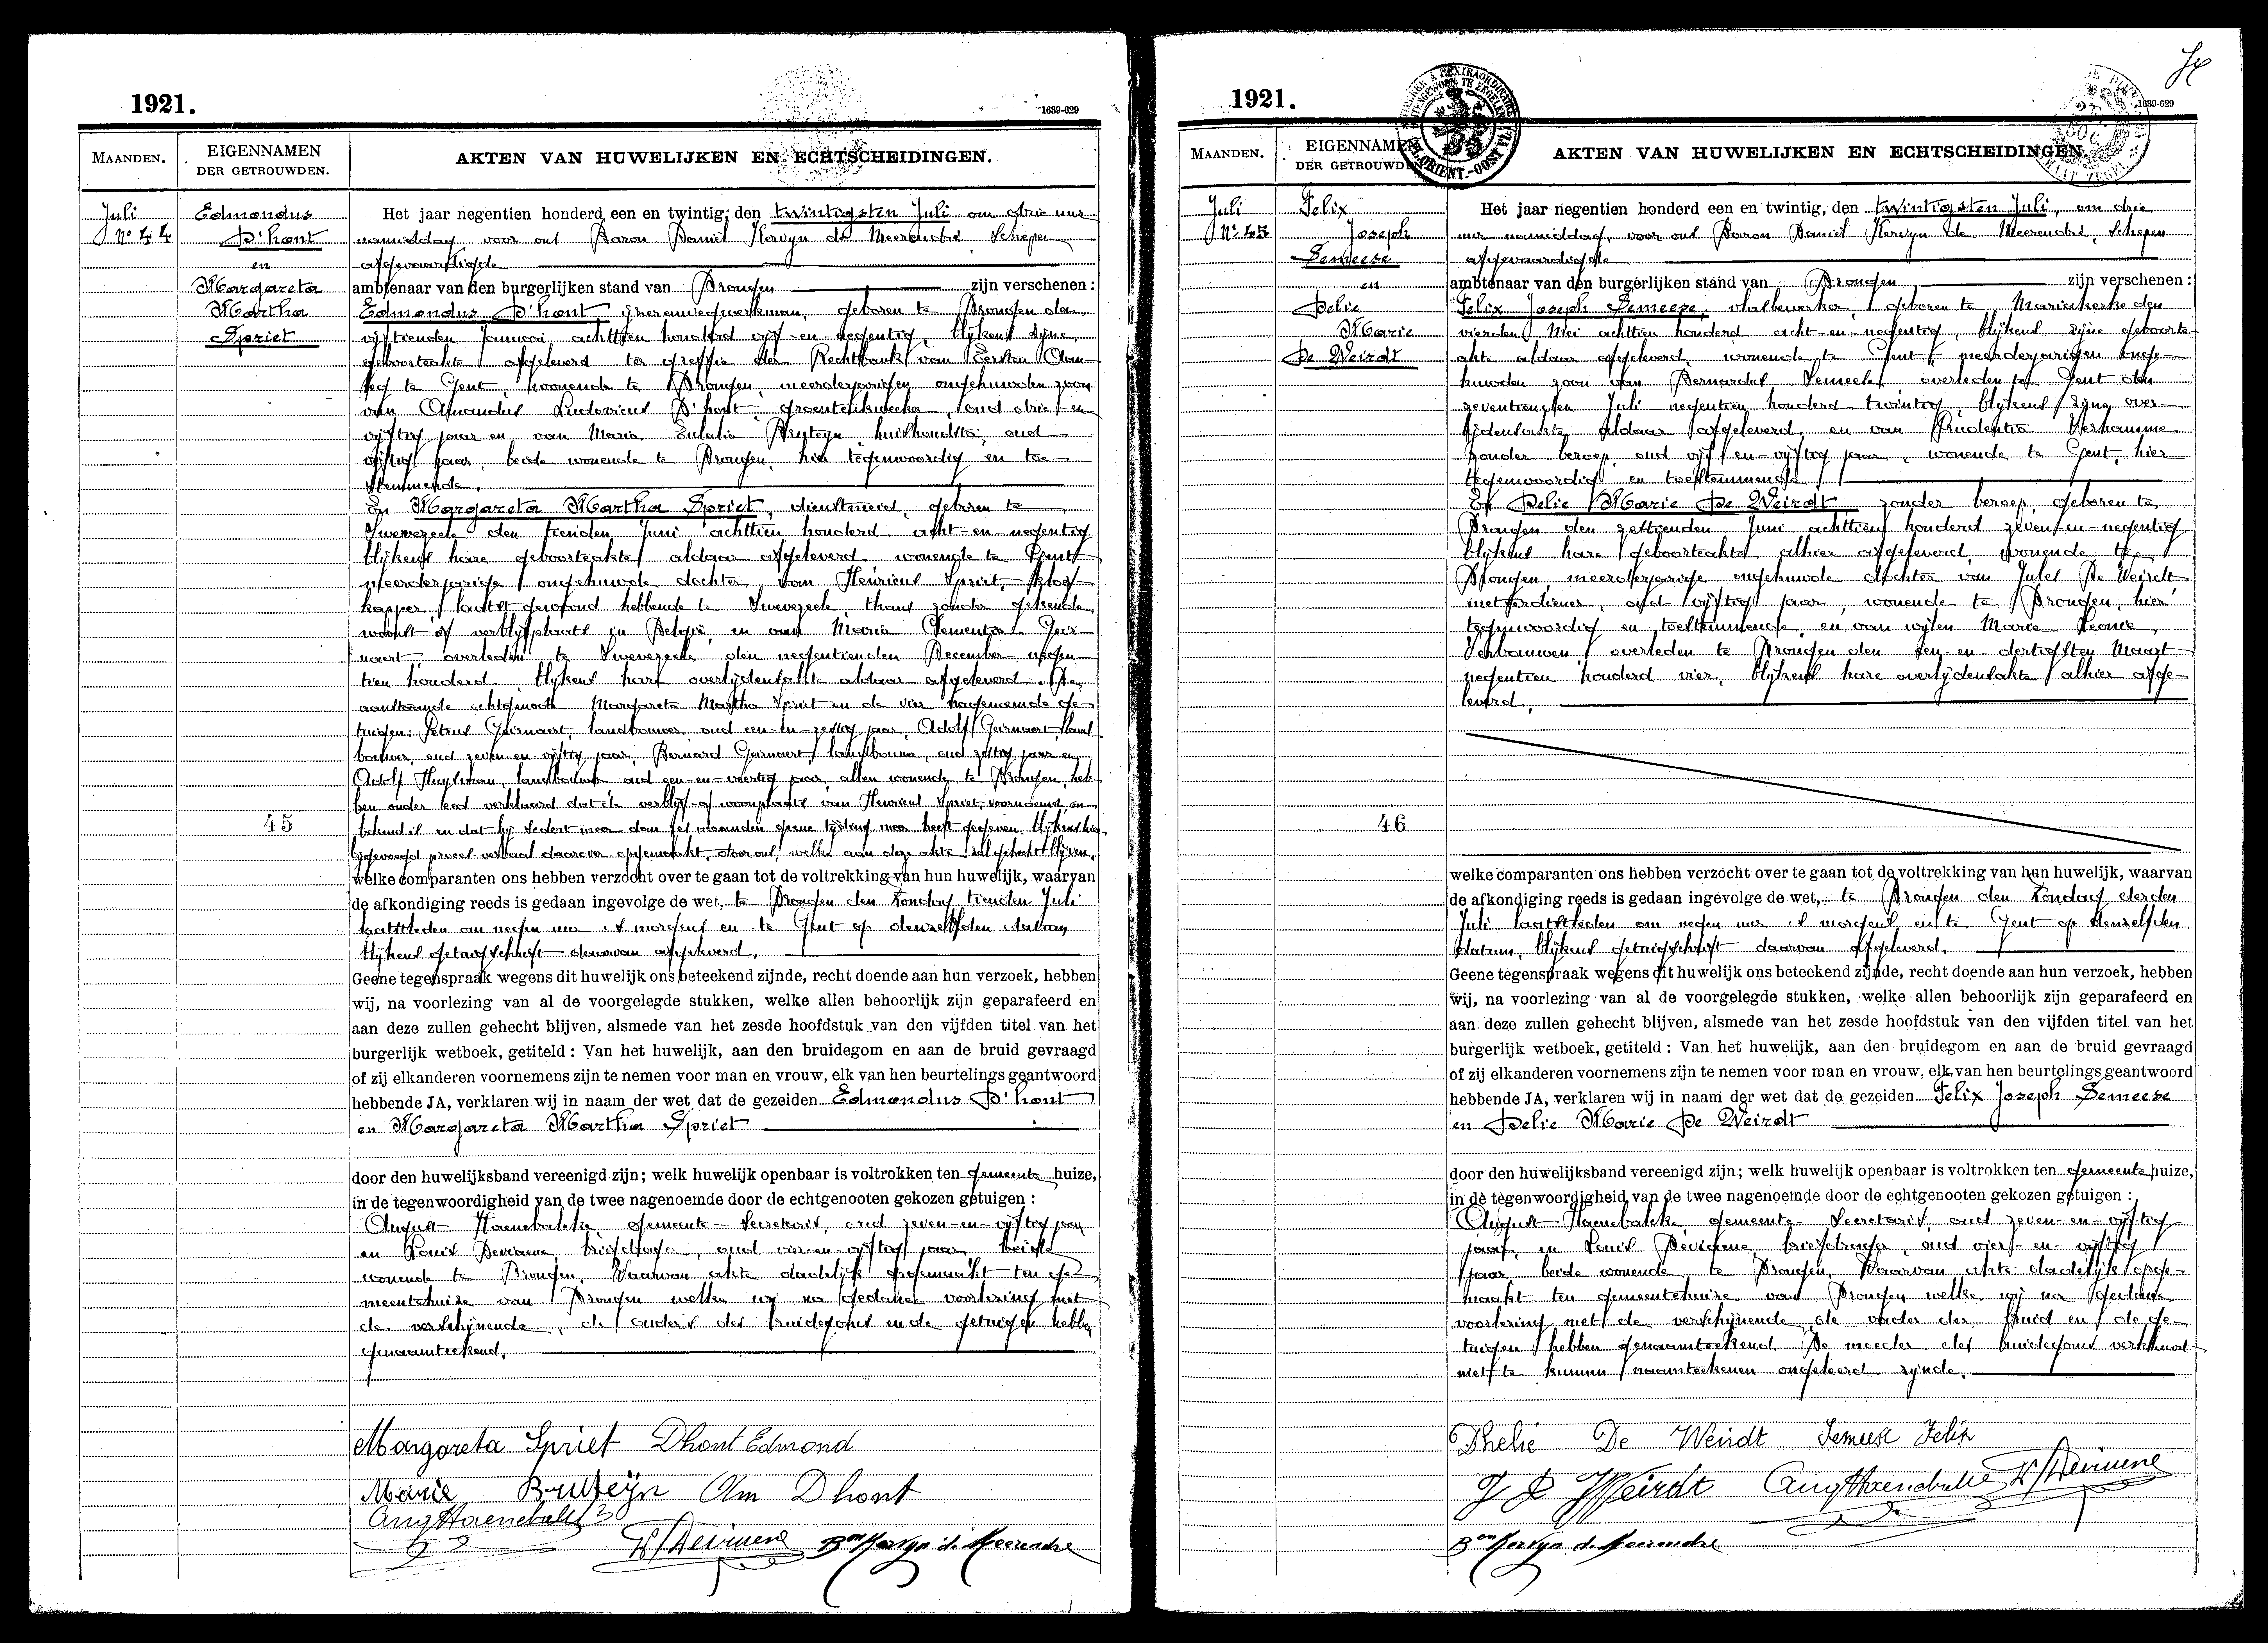 1921.
1639-629
MAANDEN.
EIGENNAMEN
DER GETROUWDEN.
AKTEN VAN HUWELIJKEN EN ECHTSCHEIDINGEN.
Juli
No 44
Edmondus
D'hont
en
Margareta
Martha
Spriet
45
Het jaar negentien honderd een en twintig, den twintigsten Juli om drie uur
namiddag, voor ons Baron Daniël Kervyn de Meerendré, Schepen
afgevaardigde
ambtenaar van den burgerlijken stand van Drongen zijn verschenen:
Edmondus D'hont, ijzerenwegwerkman, geboren te Drongen den
vijftienden Januari achttien honderd vijf-en-negentig, blijkens zijne
geboorteakte afgeleverd ter greffie der Rechtbank van Eersten Aan-
leg te Gent, wonende te Drongen, meerderjarigen ongehuwden zoon
van Amandus Ludovicus D'hont, groentenkweeker, oud drie-en-
vijftig jaar en van Maria Eulalia Bruteyn, huishoudster, oud
vijftig jaar, beide wonende te Drongen, hier tegenwoordig en toe-
stemmende.
En Margareta Martha Spriet, dienstmeid, geboren te
Swevezeele den tienden Juni achttien honderd acht-en-negentig
blijkens hare geboorteakte aldaar afgeleverd wonende te Gent
meerderjarige ongehuwde dochter van Henricus Spriet,
kapper, laatst gewoond hebbende te Swevezeele, thans zonder gekende
woonst of verblijfplaats in België, en van Maria Clementia Geir-
naert, overleden te Swevezeele den negentienden December negen-
tien honderd, blijkens hare overlijdensakte aldaar afgeleverd. De
aanstaande echtgenoote Margareta Martha Spriet en de vier nagenoemde ge-
tuigen: Petrus Geirnaert, landbouwer, oud een-en-zestig jaar, Adolf Geirnaert, land-
bouwer, oud zeven-en-vijftig jaar, Bernard Geirnaert, landbouwer, oud zestig jaar en
Adolf Huysman, landbouwer oud een-en-veertig jaar, allen wonende te Drongen, heb-
ben onder eed verklaard dat de verblijf- of woonplaats van Henricus Spriet, voornoemd, on-
bekend is en dat hij sedert meer dan zes maanden geene tijding meer heeft gegeven. Blijkens hier-
bijgevoegd proces-verbaal daarover opgemaakt, door ons, welke aan deze akte zal gehecht blijven.
welke comparanten ons hebben verzocht over te gaan tot de voltrekking van hun huwelijk, waarvan
de afkondiging reeds is gedaan ingevolge de wet, te Drongen den Zondag tienden Juli
laatstleden om negen uur 's morgens en te Gent op denzelfden datum
blijkens getuigschrift daarvan afgeleverd.
Geene tegenspraak wegens dit huwelijk ons beteekend zijnde, recht doende aan hun verzoek, hebben
wij, na voorlezing van al de voorgelegde stukken, welke allen behoorlijk zijn geparafeerd en
aan deze zullen gehecht blijven, alsmede van het zesde hoofdstuk van den vijfden titel van het
burgerlijk wetboek, getiteld : Van het huwelijk, aan den bruidegom en aan de bruid gevraagd
of zij elkanderen voornemens zijn te nemen voor man en vrouw, elk van hen beurtelings geantwoord
hebbende JA, verklaren wij in naam der wet dat de gezeiden Edmondus D'hont
en Margareta Martha Spriet
door den huwelijksband vereenigd zijn; welk huwelijk openbaar is voltrokken ten gemeente huize,
in de tegenwoordigheid van de twee nagenoemde door de echtgenooten gekozen getuigen :
August Haenebalcke, gemeente-Secretaris, oud zeven-en-vijftig jaar
en Louis Deviaene, briefdrager, oud vier-en-vijftig jaar, beide
wonende te Drongen. Waarvan akte dadelijk opgemaakt ten ge-
meentehuize van Drongen welke wij na gedane voorlezing met
de verschijnende, de ouders des bruidegoms en de getuigen hebben
genaamteekend.
Margareta Spriet Dhont Edmond
Marie Bruteyn Am Dhont
Aug Haenebalcke
Bon Kervyn de Meerendré
1921.
1639-629
MAANDEN.
EIGENNAMEN
DER GETROUWDEN.
AKTEN VAN HUWELIJKEN EN ECHTSCHEIDINGEN.
Juli
No 45
Felix
Joseph
Semeese
en
Delie
Marie
De Weirdt
46
Het jaar negentien honderd een en twintig, den twintigsten Juli, om drie
uur namiddag, voor ons Baron Daniël Kervyn de Meerendré, Schepen
afgevaardigde
ambtenaar van den burgerlijken stand van Drongen zijn verschenen:
Felix Joseph Semeese, vlasbewerker, geboren te Mariakerke den
vierden Mei achttien honderd acht-en-negentig, blijkens zijne geboorte-
akte aldaar afgeleverd, wonende te Gent, meerderjarigen onge-
huwden zoon van Bernardus Semeese, overleden te Gent den
zeventienden Juli negentien honderd twintig, blijkens zijne over-
lijdensakte aldaar afgeleverd, en van Prudentia Verhamme
zonder beroep, oud vijf-en-vijftig jaar, wonende te Gent, hier
tegenwoordig en toestemmende.
En Delie Marie De Weirdt, zonder beroep, geboren te
Drongen den zestienden Juni achttien honderd zeven-en-negentig
blijkens hare geboorteakte alhier afgeleverd, wonende te
Drongen, meerderjarige ongehuwde dochter van Jules De Weirdt
metserdiener, oud vijftig jaar, wonende te Drongen, hier
tegenwoordig en toestemmende, en van wijlen Marie Leonie
Verbauwen, overleden te Drongen den een-en-dertigsten Maart
negentien honderd vier, blijkens hare overlijdensakte alhier afge-
leverd.
welke comparanten ons hebben verzocht over te gaan tot de voltrekking van hun huwelijk, waarvan
de afkondiging reeds is gedaan ingevolge de wet, te Drongen den Zondag derden
Juli laatstleden om negen uur 's morgens en te Gent op denzelfden
datum, blijkens getuigschrift daarvan afgeleverd.
Geene tegenspraak wegens dit huwelijk ons beteekend zijnde, recht doende aan hun verzoek, hebben
wij, na voorlezing van al de voorgelegde stukken, welke allen behoorlijk zijn geparafeerd en
aan deze zullen gehecht blijven, alsmede van het zesde hoofdstuk van den vijfden titel van het
burgerlijk wetboek, getiteld : Van het huwelijk, aan den bruidegom en aan de bruid gevraagd
of zij elkanderen voornemens zijn te nemen voor man en vrouw, elk van hen beurtelings geantwoord
hebbende JA, verklaren wij in naam der wet dat de gezeiden Felix Joseph Semeese
en Delie Marie De Weirdt
door den huwelijksband vereenigd zijn; welk huwelijk openbaar is voltrokken ten gemeente huize,
in de tegenwoordigheid van de twee nagenoemde door de echtgenooten gekozen getuigen :
August Haenebalcke, gemeente-Secretaris, oud zeven-en-vijftig
jaar, en Louis Deviaene, briefdrager, oud vier-en-vijftig
jaar, beide wonende te Drongen. Waarvan akte dadelijk opge-
maakt ten gemeentehuize van Drongen welke wij na gedane
voorlezing met de verschijnende, de vader der bruid en de ge-
tuigen hebben genaamteekend. De moeder des bruidegoms verklaart
niet te kunnen naamteekenen ongeleerd zijnde.
Dhelie De Weirdt Semeese Felix
J D Weirdt Aug Haenebalcke
Bon Kervyn de Meerendré